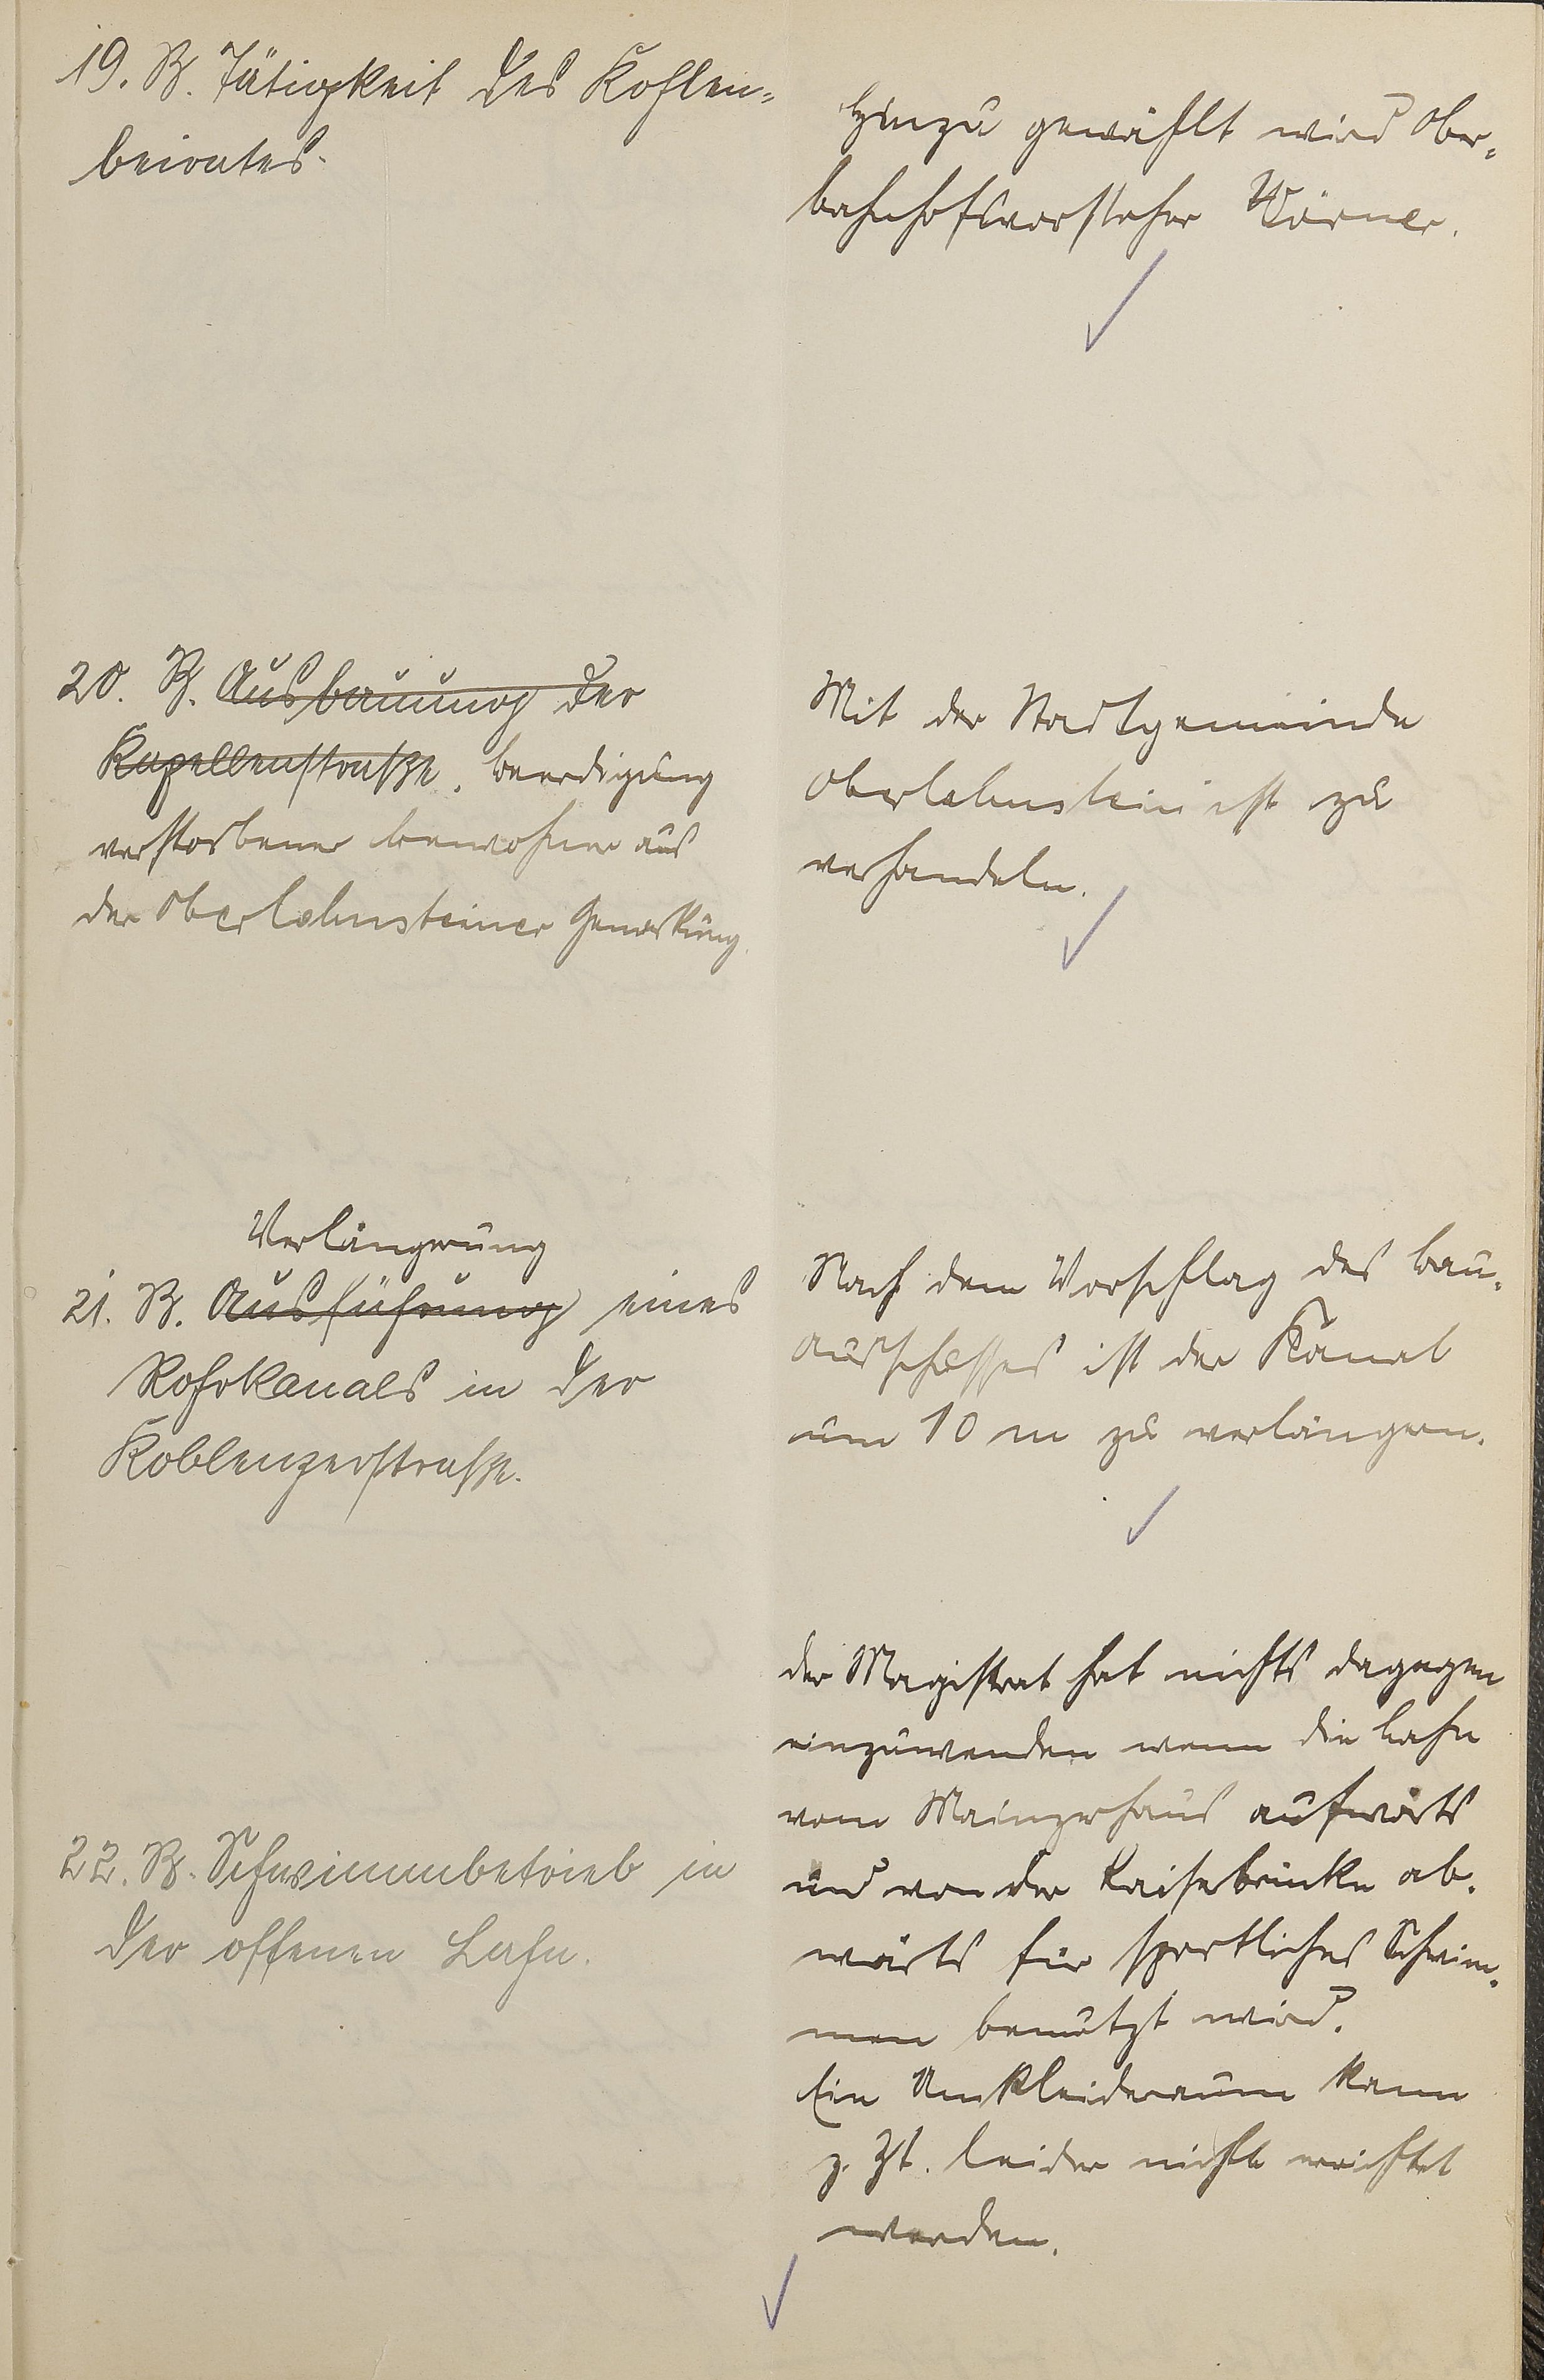 19. B. Tätigkeit des Kohlen-
beirates.
Hinzu gewählt wird Ober-
bahnhofsvorsteher Körner.
20. B. Ausbauung der
Kapellenstraße. Beerdigung
verstorbener Bewohner aus
der Oberlahnsteiner Gemarkung.
Mit der Stadtgemeinde
Oberlahnstein ist zu
verhandeln.
Verlängerung
21. B. Ausführung eines
Rohrkanals in der
Koblenzerstraße.
Nach dem Vorschlag des Bau-
ausschusses ist der Kanal
um 10 m zu verlängern.
22. B. Schwimmbetrieb in
der offenen Lahn.
Der Magistrat hat nichts dagegen
einzuwenden wenn die Lahn
vom Mainzerhaus aufwärts
und von der Kaiserbrücke ab-
wärts für sportliches Schwim-
men benutzt wird.
Ein Umkleideraum kann
z. Zt. leider nicht errichtet
werden.